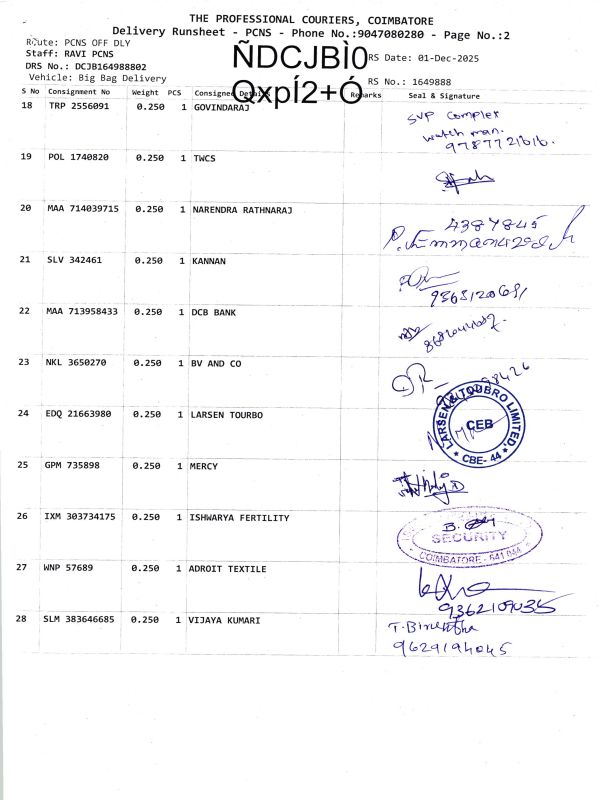 THE PROFESSIONAL COURIERS, COIMBATORE
Delivery Runsheet - PCNS - Phone No.:9047080280 - Page No.:2
Route: PCNS OFF DLY
Staff: RAVI PCNS
RS Date: 01-Dec-2025
DRS No.: DCJB164988802
ÑDCJBÌ0
QxpÍ2+Ó
Vehicle: Big Bag Delivery
RS No.: 1649888
S No Consignment No Weight PCS Consignee Details Remarks Seal & Signature
18 TRP 2556091 0.250 1 GOVINDARAJ
SVP Complex
watch man.
9787721616.
19 POL 1740820 0.250 1 TWCS
20 MAA 714039715 0.250 1 NARENDRA RATHNARAJ
4387845
21 SLV 342461 0.250 1 KANNAN
22 MAA 713958433 0.250 1 DCB BANK
23 NKL 3650270 0.250 1 BV AND CO
24 EDQ 21663980 0.250 1 LARSEN TOURBO
LARSEN & TOUBRO LIMITED.
CEB
* CBE- 44 *
25 GPM 735898 0.250 1 MERCY
26 IXM 303734175 0.250 1 ISHWARYA FERTILITY
SECURITY
COIMBATORE - 641 044
27 WNP 57689 0.250 1 ADROIT TEXTILE
9362109035
28 SLM 383646685 0.250 1 VIJAYA KUMARI
9629194045